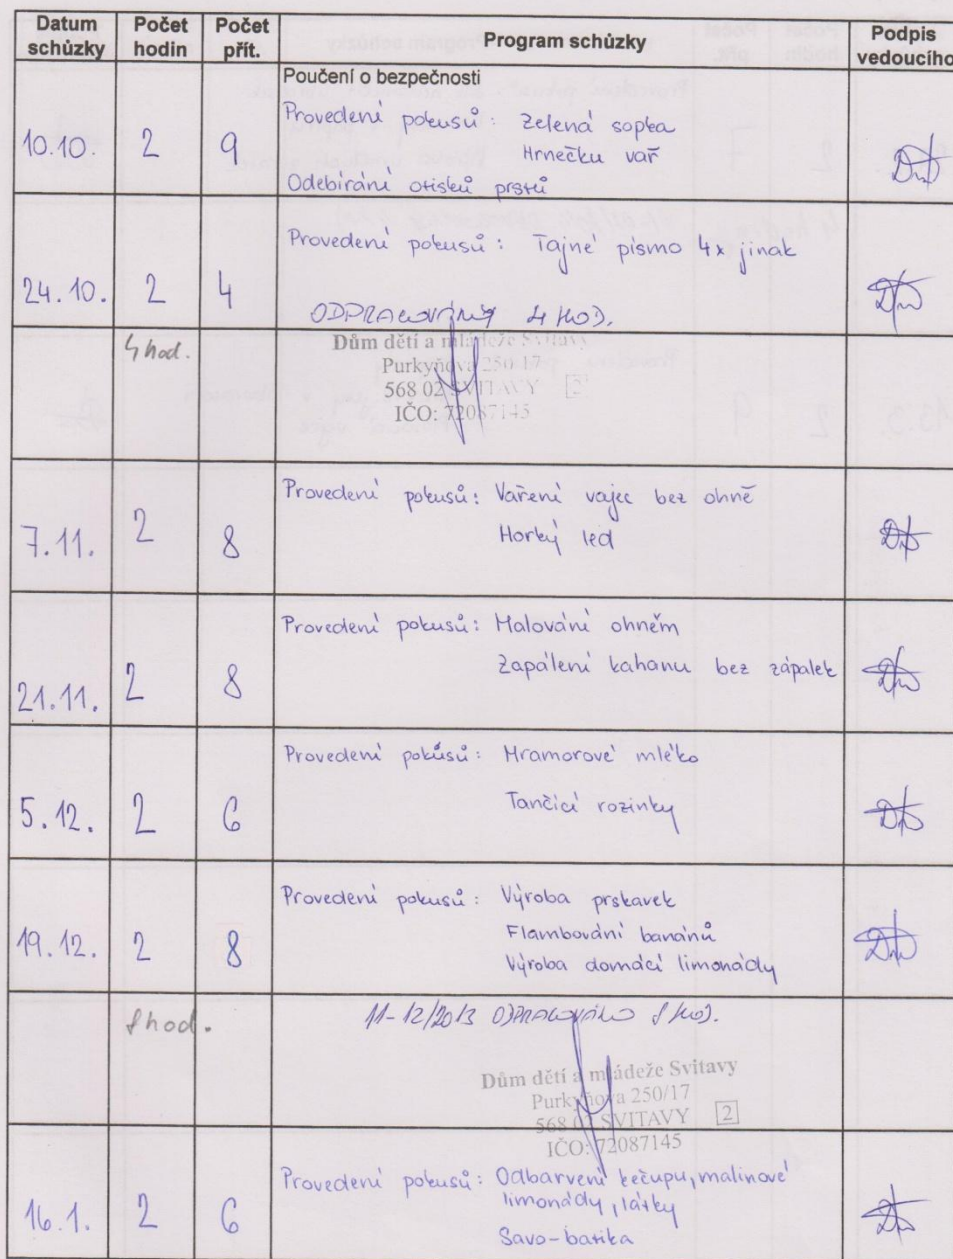 Datum schůzky Počet hodin Počet přít. Program schůzky Podpis vedoucího
Poučení o bezpečnosti
10.10. 2 9 Provedení pokusů: Zelená sopka
Hrnečku vař
Odebírání otisků prstů
Provedení pokusů: Tajné písmo 4x jinak
24.10. 2 4
ODPRACOVÁNY 4 HOD.
4 hod.
Dům dětí a mládeže Svitavy
Purkyňova 250/17
568 02 SVITAVY 2
IČO: 72087145
Provedení pokusů: Vaření vajec bez ohně
7.11. 2 8 Horký led
Provedení pokusů: Malování ohněm
21.11. 2 8 Zapálení kahanu bez zápalek
Provedení pokusů: Mramorové mléko
5.12. 2 6 Tančící rozinky
Provedení pokusů: Výroba prskavek
19.12. 2 8 Flambování banánů
Výroba domácí limonády
8 hod. 11-12/2013 ODPRACOVÁNO 8 HOD.
Dům dětí a mládeže Svitavy
Purkyňova 250/17
568 02 SVITAVY 2
IČO: 72087145
Provedení pokusů: Odbarvení kečupu, malinové
16.1. 2 6 limonády, látky
Savo-batika